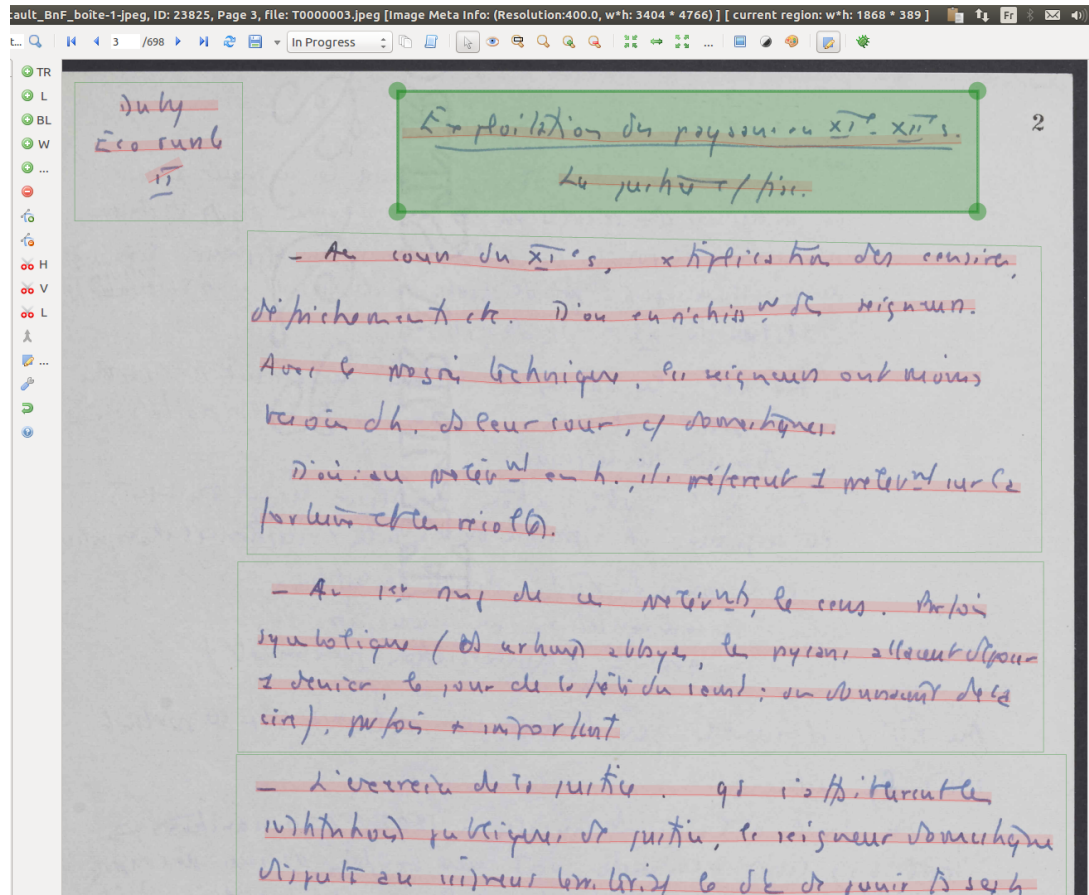 cault_BnF_boîte-1-jpeg, ID: 23825, Page 3, file: T0000003.jpeg [Image Meta Info: (Resolution:400.0, w*h: 3404 * 4766) ] [ current region: w*h: 1868 * 389 ]
Fr
t...
3
/698
In Progress
...
TR
L
BL
W
...
H
V
L
...
Duby
Eco rurale
II
Exploitation du paysan au XIe - XIIe s.
La justice et / fisc.
2
- Au cours du XIe s, xtiplication des censives,
défrichements etc. D'où enrichisst des seigneurs.
Avec le progrès technique, les seigneurs ont moins
besoin d'h. ds leur cour, c/ domestiques.
D'où: au prélèvt en h., ils préfèrent 1 prélèvt sur la
fortune et les récoltes.
- Au 1er rang de ces prélèvts, le cens. Parfois
symbolique (ds certaines abbayes, les paysans allaient déposer
1 denier, le jour de la fête du saint; ou donnaient de la
cire), parfois + important
- L'exercice de la justice. qd s'affaiblirent les
institutions publiques de justice, le seigneur domestique
disputa au seigneur le dt de punir